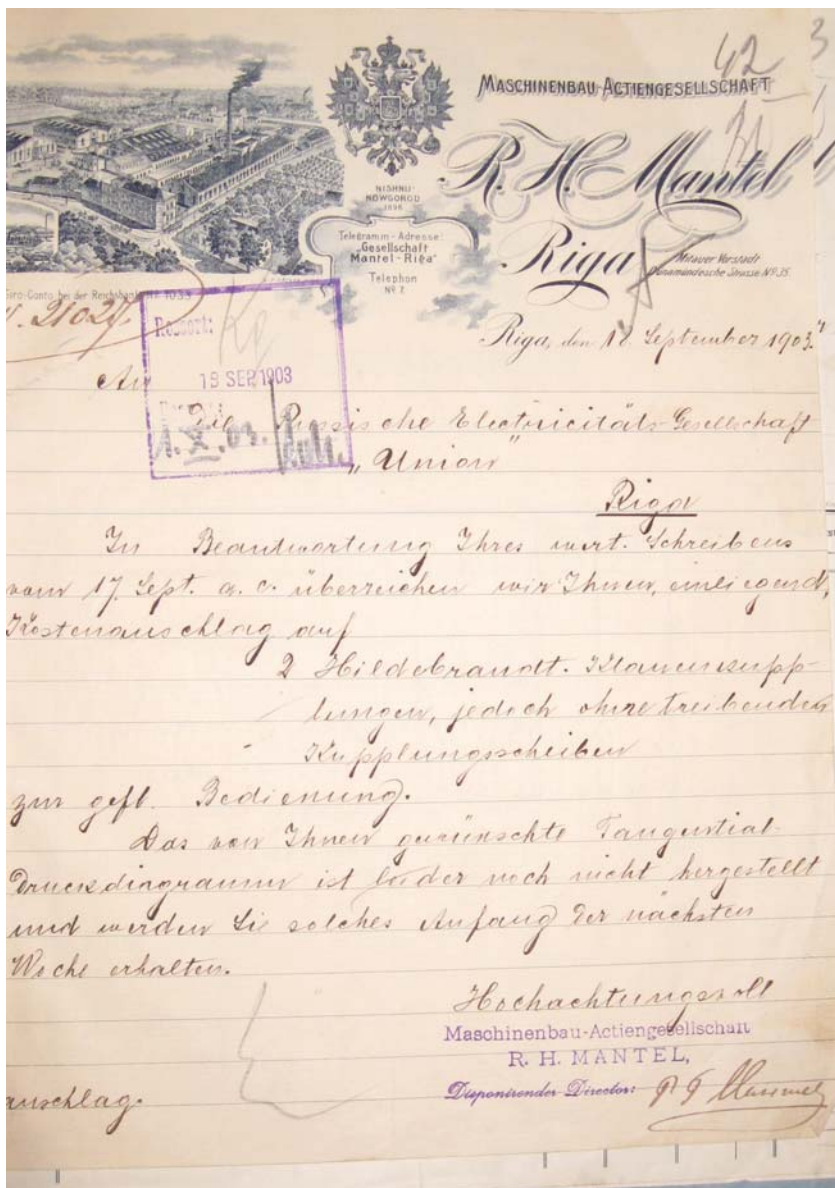 MASCHINENBAU-ACTIENGESELLSCHAFT
R. H. Mantel
Riga
Mitauer Vorstadt
Dünamündesche Strasse Nº 35.
NISHNIJ-
NOWGOROD
1896
Telegramm-Adresse:
„Gesellschaft
Mantel-Riga"
Telephon
Nº 7.
Giro-Conto bei der Reichsbank Nº 1033
42
Ressort:
19 SEP 1903
1. X. 03.
Riga, den 18. September 1903.
An
Die Russische Electricitäts-Gesellschaft
„Union"
Riga
In Beantwortung Ihres wert. Schreibens
vom 17. Sept. a. c. überreichen wir Ihnen, einliegend,
Kostenanschlag auf
2 Hildebrandt. Klauenkupp-
lungen, jedoch ohne treibenden
Kupplungsscheiben
zur gefl. Bedienung.
Das von Ihnen gewünschte Tangential-
druckdiagramm ist leider noch nicht hergestellt
und werden Sie solches Anfang der nächsten
Woche erhalten.
Hochachtungsvoll
Maschinenbau-Actiengesellschaft
R. H. MANTEL,
Disponirender Director:
anschlag.